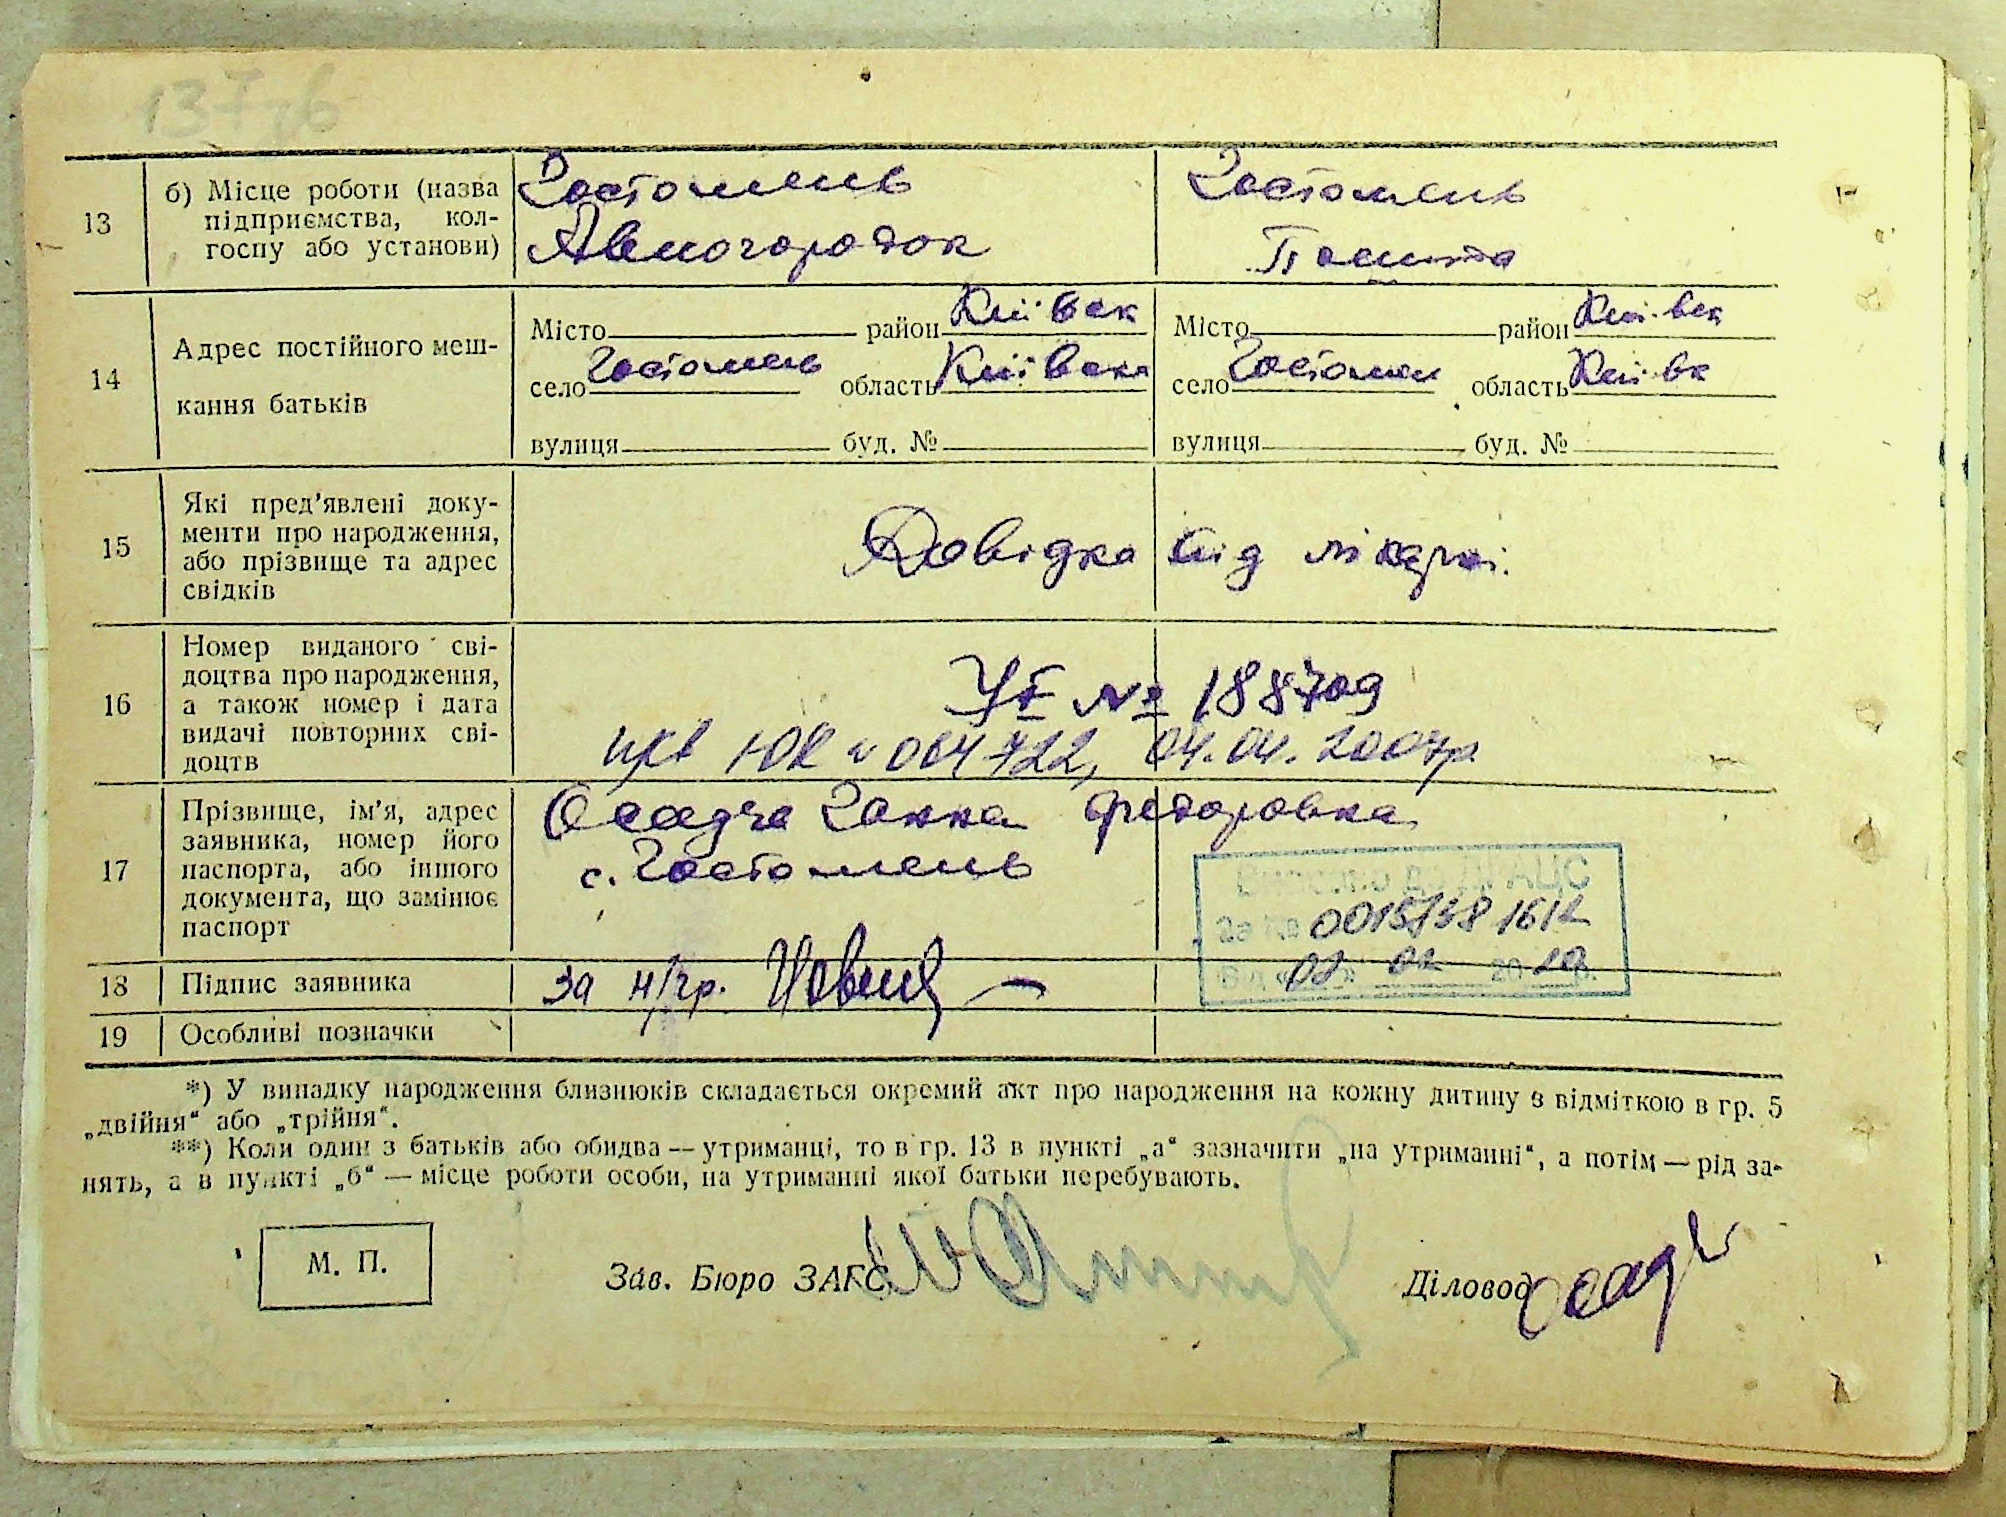 13
б) Місце роботи (назва
підприємства, кол-
госпу або установи)
Гостомель
Авіогородок
Гостомель
Пошта
14
Адрес постійного меш-
кання батьків
Місто район Київськ
село Гостомель область Київська
вулиця буд. №
Місто район Київськ
село Гостомел область Київськ
вулиця буд. №
15
Які пред'явлені доку-
менти про народження,
або прізвище та адрес
свідків
Довідка від лікарні.
16
Номер виданого сві-
доцтва про народження,
а також номер і дата
видачі повторних сві-
доцтв
№ 188709
№ 064722, 04.04.2007р.
17
Прізвище, ім'я, адрес
заявника, номер його
паспорта, або іншого
документа, що замінює
паспорт
Осадча Ганна Федоровна
с. Гостомель
Внесено до ДРАЦС
за № 00157381612
Від « 02 » 20 р.
18
Підпис заявника
за н/гр.
19
Особливі позначки
*) У випадку народження близнюків складається окремий акт про народження на кожну дитину з відміткою в гр. 5
„двійня“ або „трійня“.
**) Коли один з батьків або обидва — утриманці, то в гр. 13 в пункті „а“ зазначити „на утриманні“, а потім — рід за-
нять, а в пункті „б“ — місце роботи особи, на утриманні якої батьки перебувають.
М. П.
Зав. Бюро ЗАГС
Діловод